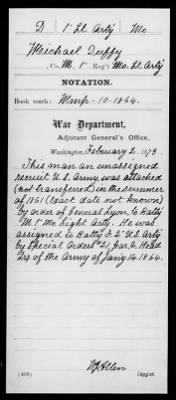 D | 1 Lt. Arty | Mo
Michael Duffy
Co. M. 1 Reg't Mo. Lt. Arty
NOTATION.
Book mark: Mmp-10-1864.
War Department,
Adjutant General's Office,
Washington, February 2, 1878.
This man an unassigned
recruit U.S. Army was attached
(not transferred) in the summer
of 1861 (exact date not known)
by order of General Lyon to Batty
M. 1" Mo Light Arty. He was
assigned to Batty F. 2" U.S. Arty
by Special Orders 21, Par. 6, Head
Qrs of the Army of Jan'y 14. 1864.
Allen
Copyist.